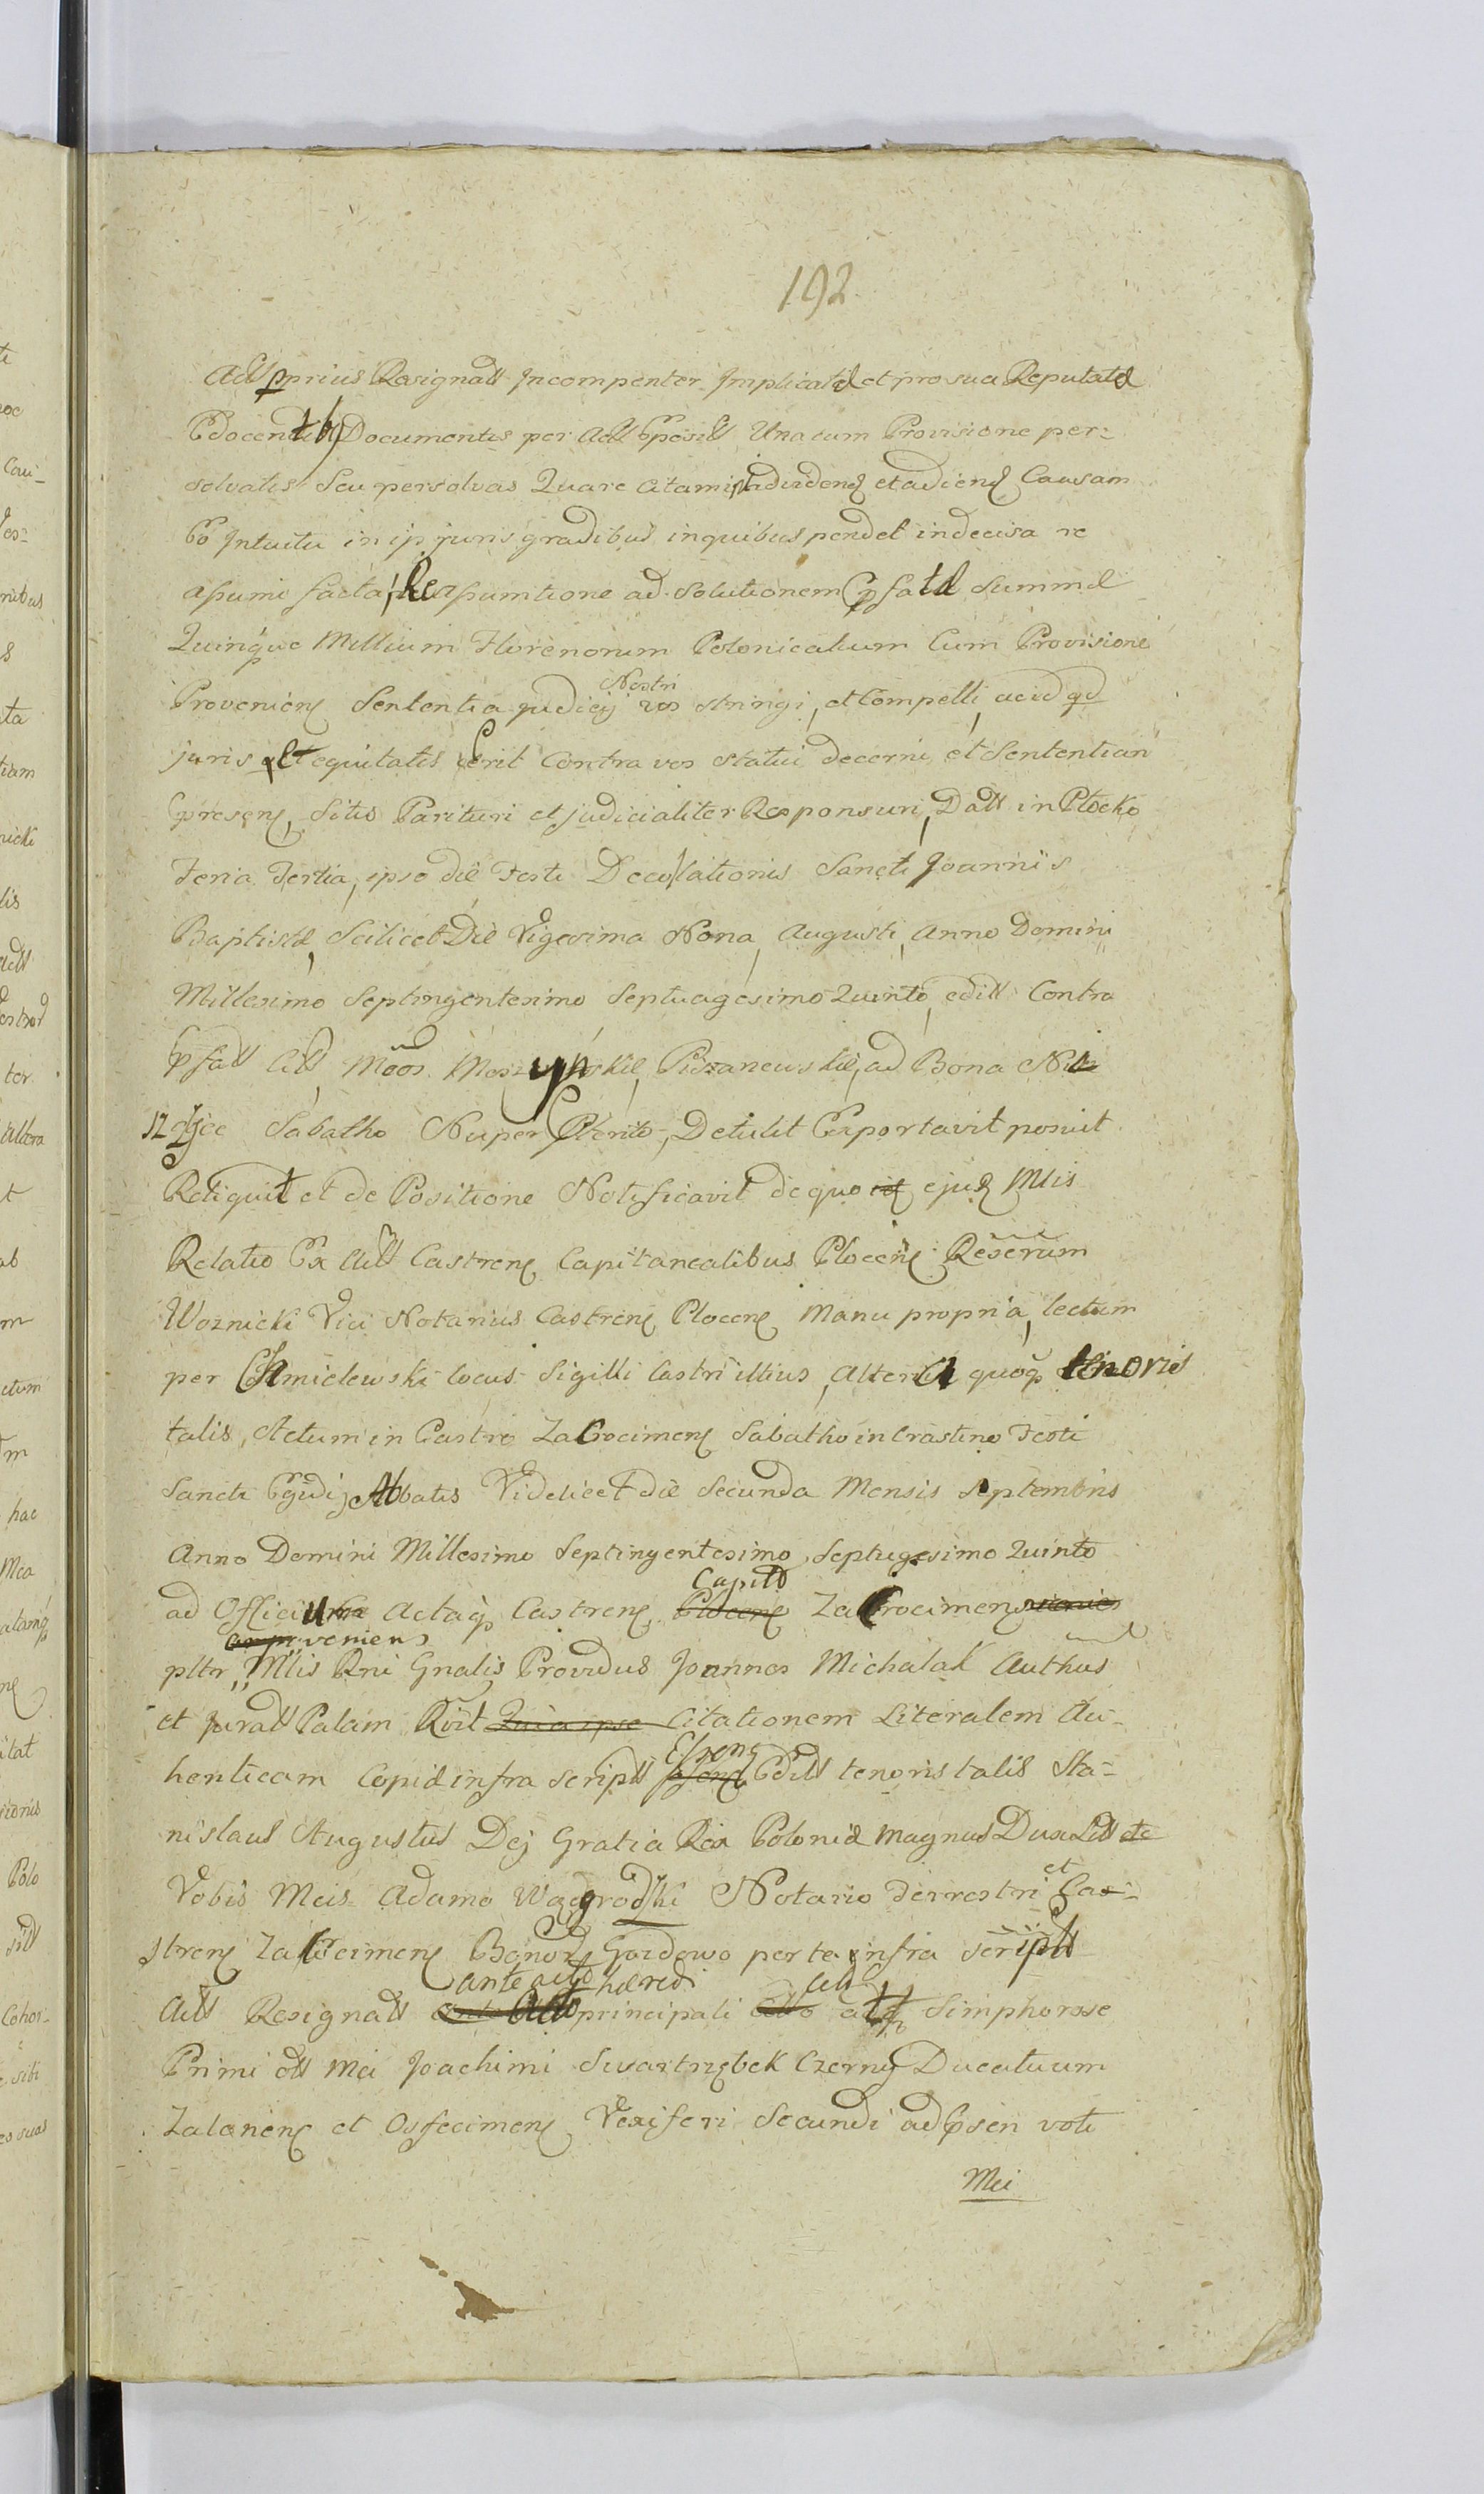 192
Actt pprius Resignatt Incompenter Implicatæ et pro sua Reputatæ
Edocend Documentis per Actt Eposill Una cum Provisione per=
solvatis Seu persolvas Quare citamini advidenꝭ et adienꝭ Causam
Eo Intuitu in ip juris gradibus inquibus pendet indecisa re
assumi facta, Reassumtione ad solutionem Epsatæ Summæ
Quinque Millium Florenorum Polonicalium Cum Provisione
Provenienꝭ Sententia judicij Nostri vos stringi, et Compelli, ac id qd
juris et equitatis erit Contra vos statui decerni et Sententian
Epresenꝭ, Sitis Parituri et judicialiter Responsuri, Datt in Płocko
Feria Tertia, ipso die Festi Decollationis Sancti Joannis
Baptistæ, Scilicet Die Vigesima Nona, Augusti, Anno Domini
Millesimo Septingentesimo Septuagesimo Quinto, editt Contra
Epsatt Citt, Moos Moszynskie, Piszanewskie, ad Bona
Sabatho Nuper Pterito, Detulit Exportavit posuit
Reliquit et de Positione Notificavit de quo ejusꝭ Mlis
Relatio Ex Actt Castrenꝭ Capitanealibus Plocenꝭ Rexerum
Woznicki Vici Notarius Castrenꝭ Plocenꝭ Manu propria, lectum
per Chmielewski locus Sigilli Castri illius, Altera quoqꝫ tenoris
talis, Actum in Castro Zakrocimenꝭ Sabatho in Crastino Festi
Sancti Egidij Abbatis Videlicet die Secunda Mensis Septembris
Anno Domini Millesimo Septingentesimo, Septugesimo Quinto
ad Officium Actaqꝫ Castrenꝭ, Plocenꝭ Capitӕ Zakrocimens
proveniens
pltr, Mlis Rni Gnalis Providus Joannes Michalak Authus
et juratt Palam Rvit Quia ipse Citationem Literalem Au-
henticam Copiæ infra scriptt Essens Editt tenoris talis Sta-
nislaus Augustus Dej Gratia Rex Poloniæ Magnus Dux Litt etc
Vobis Meis Adamo Wągrodzki Notario Terrestri et Cas-
strenꝭ Zakrocimenꝭ Bonorꝭ Gozdowo per te infra scriptt
Actt Resignatt ante acto hæredi principali Simphorose
Primi ott Mei Joachimi Swartrzębek Czerny Ducatuum
Zatorienꝭ et Osfecimenꝭ Vexiferi Secundi ad Epsen voti
Mei